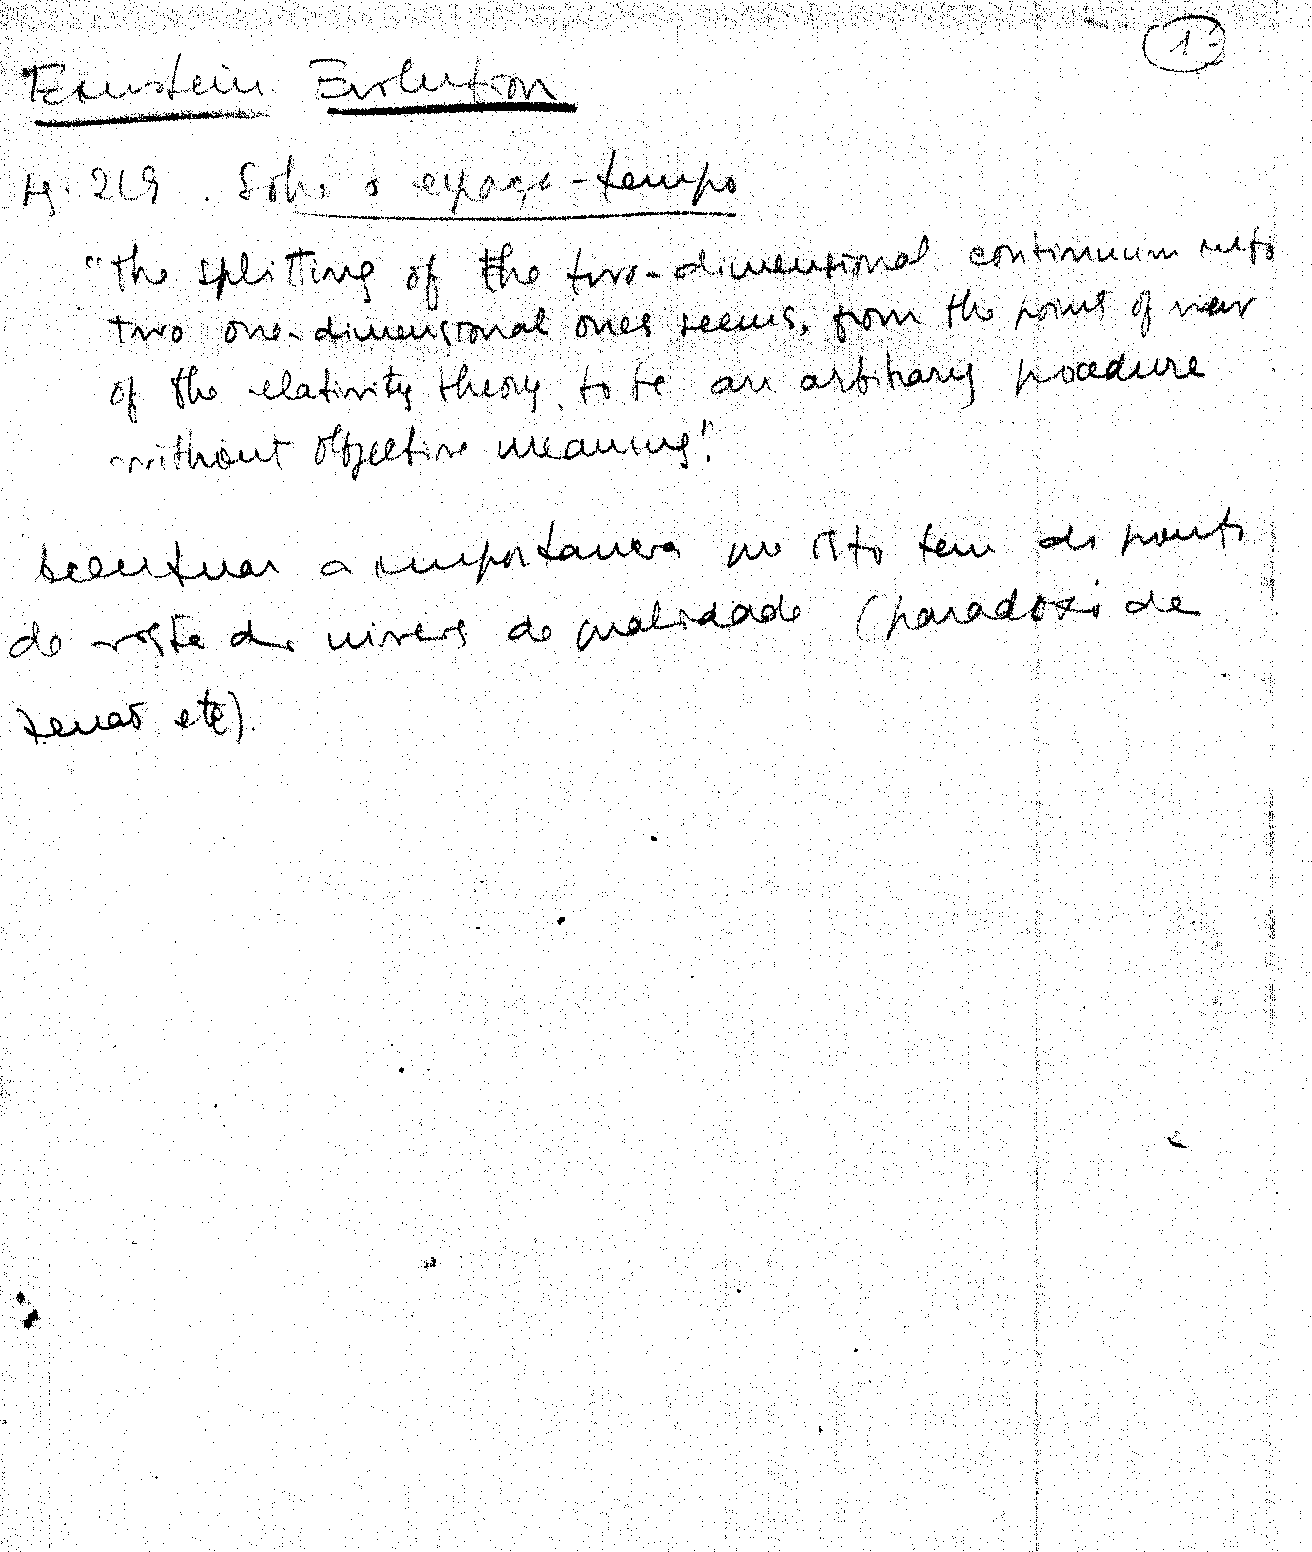 1
Einstein Evolution
Pg. 219. Sobre o espaço-tempo
"the splitting of the two-dimensional continuum into
two one-dimensional ones seems, from the point of view
of the relativity theory, to be an arbitrary procedure
without objective meaning".
Acentuar a importancia que isto tem do ponto
de vista dos niveis de qualidade (paradoxo de
Zenão etc).